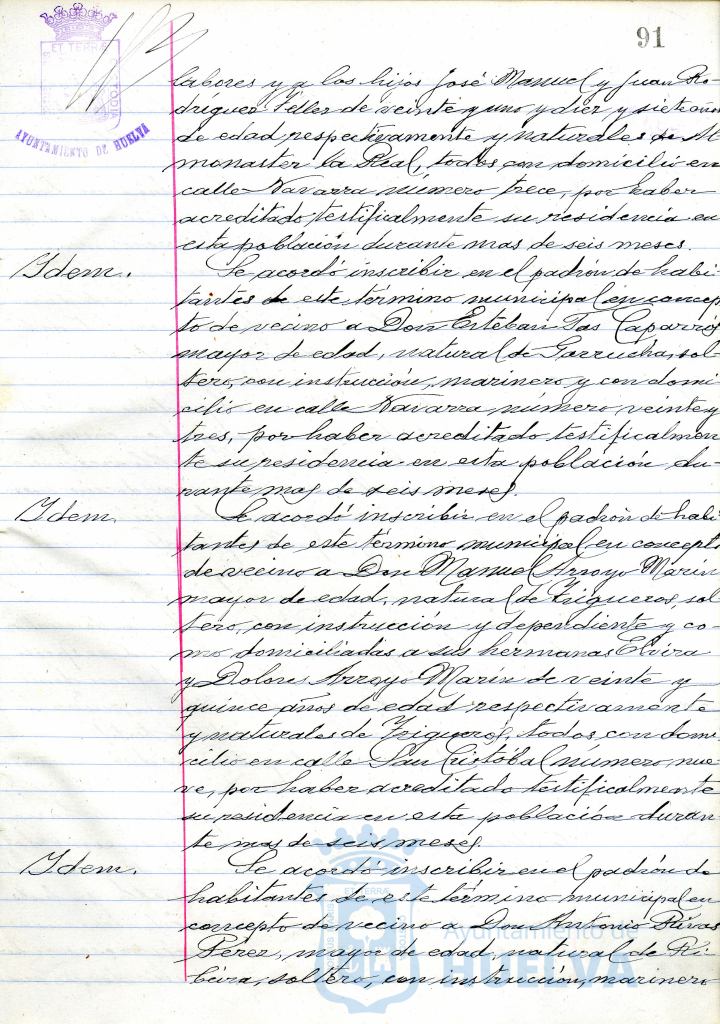 91
ET TERRÆ
AYUNTAMIENTO DE HUELVA
labores y a los hijos José Manuel y Juan Ro-
driguez Téller de veinte y uno y diez y siete años
de edad respectivamente y naturales de Al-
monaster la Real, todos con domicilio en
calle Navarra número trece, por haber
acreditado testificalmente su residencia en
esta población durante mas de seis meses.
Idem. Se acordó inscribir en el padrón de habi-
tantes de este término municipal en concep
to de vecino a Don Esteban Tas Caparrós
mayor de edad, natural de Garrucha, sol-
tero, con instrucción, marinero y con domi
cilio en calle Navarra número veinte y
tres, por haber acreditado testificalmen
te su residencia en esta población du-
rante mas de seis meses.
Idem. Se acordó inscribir en el padrón de habi
tantes de este término municipal en concepto
de vecino a Don Manuel Arroyo Marín
mayor de edad, natural de Trigueros, sol
tero, con instrucción y dependiente y co-
mo domiciliadas a sus hermanas Elvira
y Dolores Arroyo Marín de veinte y
quince años de edad respectivamente
y naturales de Trigueros, todos con domi
cilio en calle San Cristóbal número nue-
ve, por haber acreditado testificalmente
su residencia en esta población duran-
te mas de seis meses.
Idem. Se acordó inscribir en el padrón de
habitantes de este término municipal en
concepto de vecino a Don Antonio Rivas
Pérez, mayor de edad, natural de Ri-
beira, soltero, con instrucción, marinero
Ayuntamiento de
HUELVA